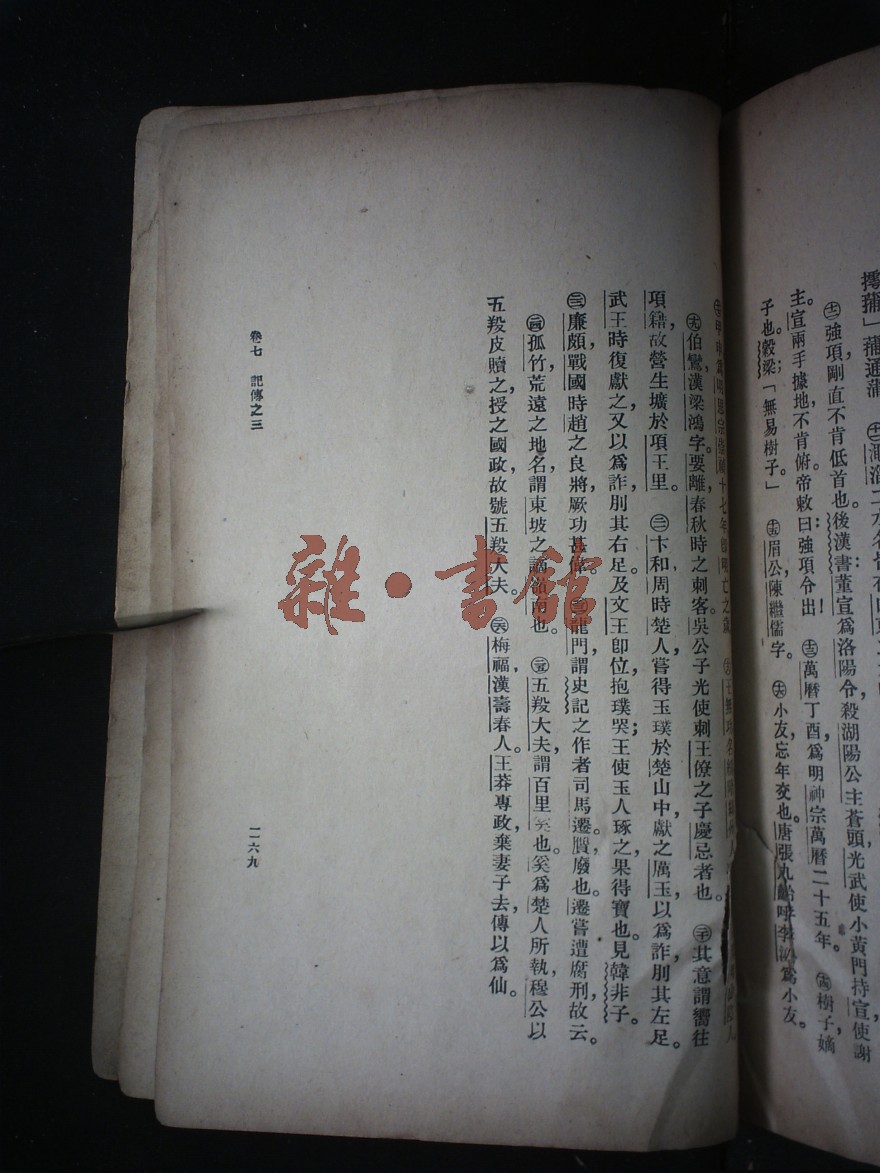 㩳蒱」蒱通蒲
㊉強項剛直不肯低首也。後漢書董宣爲洛陽令，殺湖陽公主蒼頭光武使小黃門持宣使謝
主。宣兩手據地不肯俯。帝敕曰：強項令出！ 萬曆丁酉爲明神宗萬曆二十五年。 樹子嫡
子也。穀梁「無易樹子。」 眉公陳繼儒字。 小友，忘年交也。唐張九齡呼李泌爲小友。
甲申爲明思宗崇禎十七年卽明亡之歲。
伯鸞，漢梁鴻字。要離，春秋時之刺客。吳公子光使刺王僚之子慶忌者也。 其意謂嚮往
項籍，故營生壙於項王里。 卞和，周時楚人，嘗得玉璞於楚山中，獻之厲王，以爲詐，刖其左足。
武王時復獻之，又以爲詐，刖其右足。及文王卽位，抱璞哭；王使玉人琢之，果得寶也。見韓非子。
廉頗，戰國時趙之良將，厥功甚偉。 龍門謂史記之作者司馬遷。贗，廢也。遷嘗遭腐刑，故云。
孤竹，荒遠之地名，謂東坡之謫也。 五羖大夫，謂百里奚也。奚爲楚人所執，穆公以
五羖皮贖之，授之國政，故號五羖大夫。 梅福，漢壽春人。王莽專政，棄妻子去，傳以爲仙。
卷七 記傳之三
一六九
雜·書館